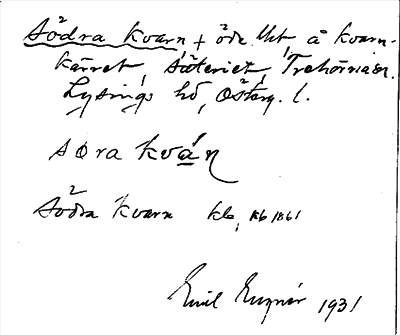 Södra kvarn, + öde lht, å kvarn-
kärret, säteriet, Trehörna sn.
Lysings hd, Österg. l.
søra kván
Södra kvarn kb, Kb 1861
Emil 1931